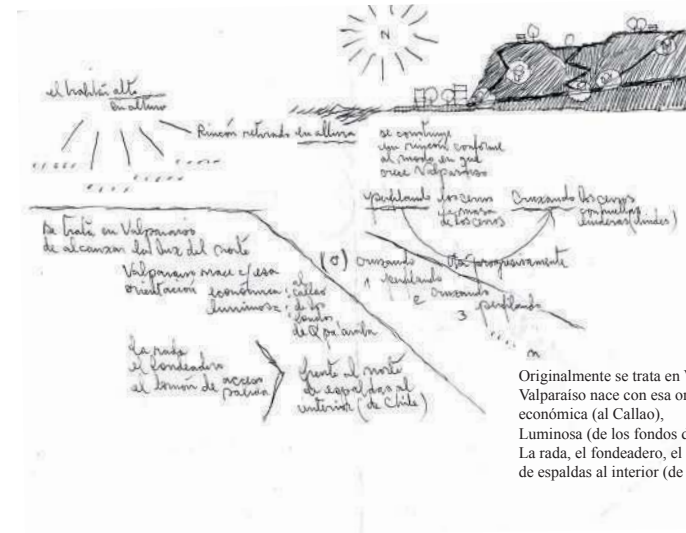 N
el habitar alto
en altura
Rincón retirado en altura
se construye
un rincón conforme
al modo en que
crece Valparaíso
perfilando los cerros
la masa
de los cerros
Cruzando los cerros
con huellas
linderas (lindes)
Se trata en Valparaíso
de alcanzar la luz del norte
Valparaíso nace c/ esa
orientación económica: al
callao
luminosa: de los
fondos
de Q. pa' arriba
(o) cruzando
1 perfilando
progresivamente
2 cruzando
3 perfilando
n
la rada
el fondeadero
el timón de acceso
salida
frente al norte
de espaldas al
interior (de Chile)
Originalmente se trata en V
Valparaíso nace con esa or
económica (al Callao),
Luminosa (de los fondos d
La rada, el fondeadero, el
de espaldas al interior (de